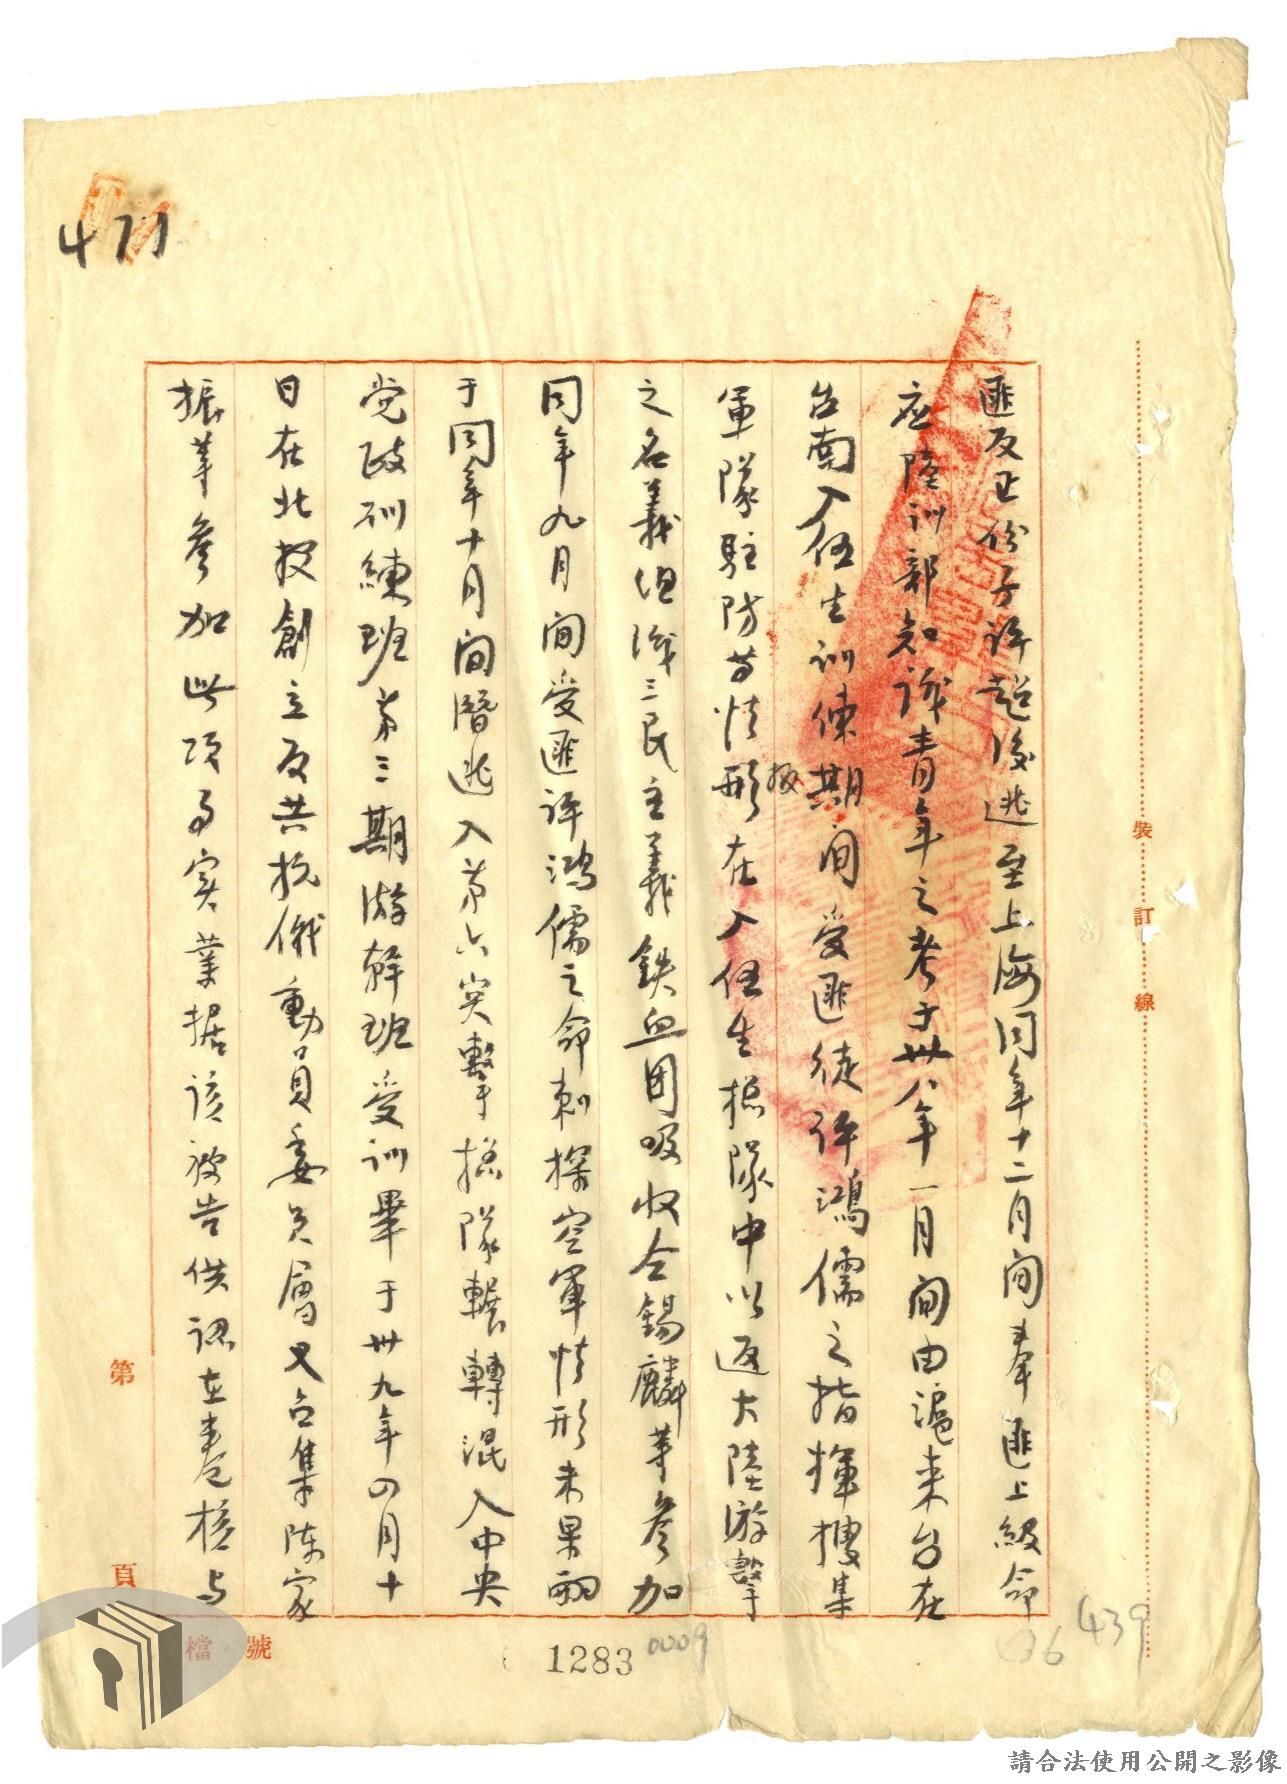 471
匪反正份子許超後逃至上海同年十二月間奉匪上級命
应陸訓部知識青年之考于卅八年一月間由滬来台在
台南入伍生訓練期間受匪徒许鴻儒之指揮搜集
軍隊駐防等情形報在入伍生總隊中以返大陸游擊
之名義组織三民主義鉄血团吸收仝錫麟等参加
同年九月间受匪许鴻儒之命刺探空軍情形未果嗣
于同年十月間潛逃入第六突擊總隊輾轉混入中央
党政训練班第三期游幹班受训畢于卅九年四月十
日在北投創立反共抗俄動員委员會又召集陈家
振等参加此项事实業据该被告供認在卷核与
裝訂線
第
頁
檔號
1283
0009
439
請合法使用公開之影像